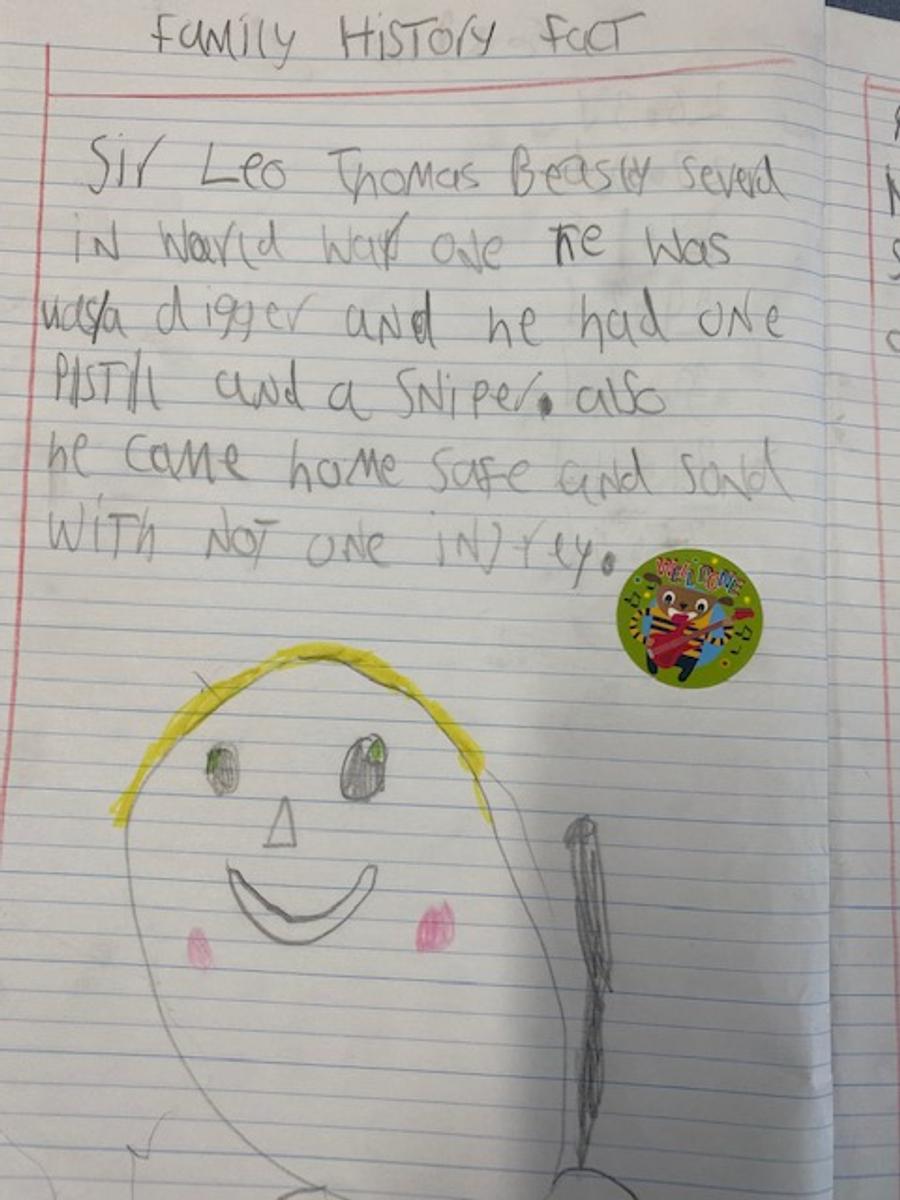 Family History Fact
Sir Leo Thomas Beasley severd
in World War one he was
was/a digger and he had one
Pistil and a sniper. also
he came home safe and sond
with not one injrey.
WELL DONE